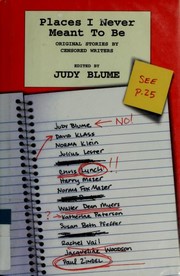 Places I Never
Meant To Be
ORIGINAL STORIES BY
CENSORED WRITERS
EDITED BY
JUDY BLUME
SEE
P.25
Judy Blume NO!
David Klass
Norma Klein
Julius Lester
Chris Lynch !!
Harry Mazer
Norma Fox Mazer
Walter Dean Myers
? Katherine Paterson
Susan Beth Pfeffer
Rachel Vail
Jacqueline Woodson
Paul Zindel